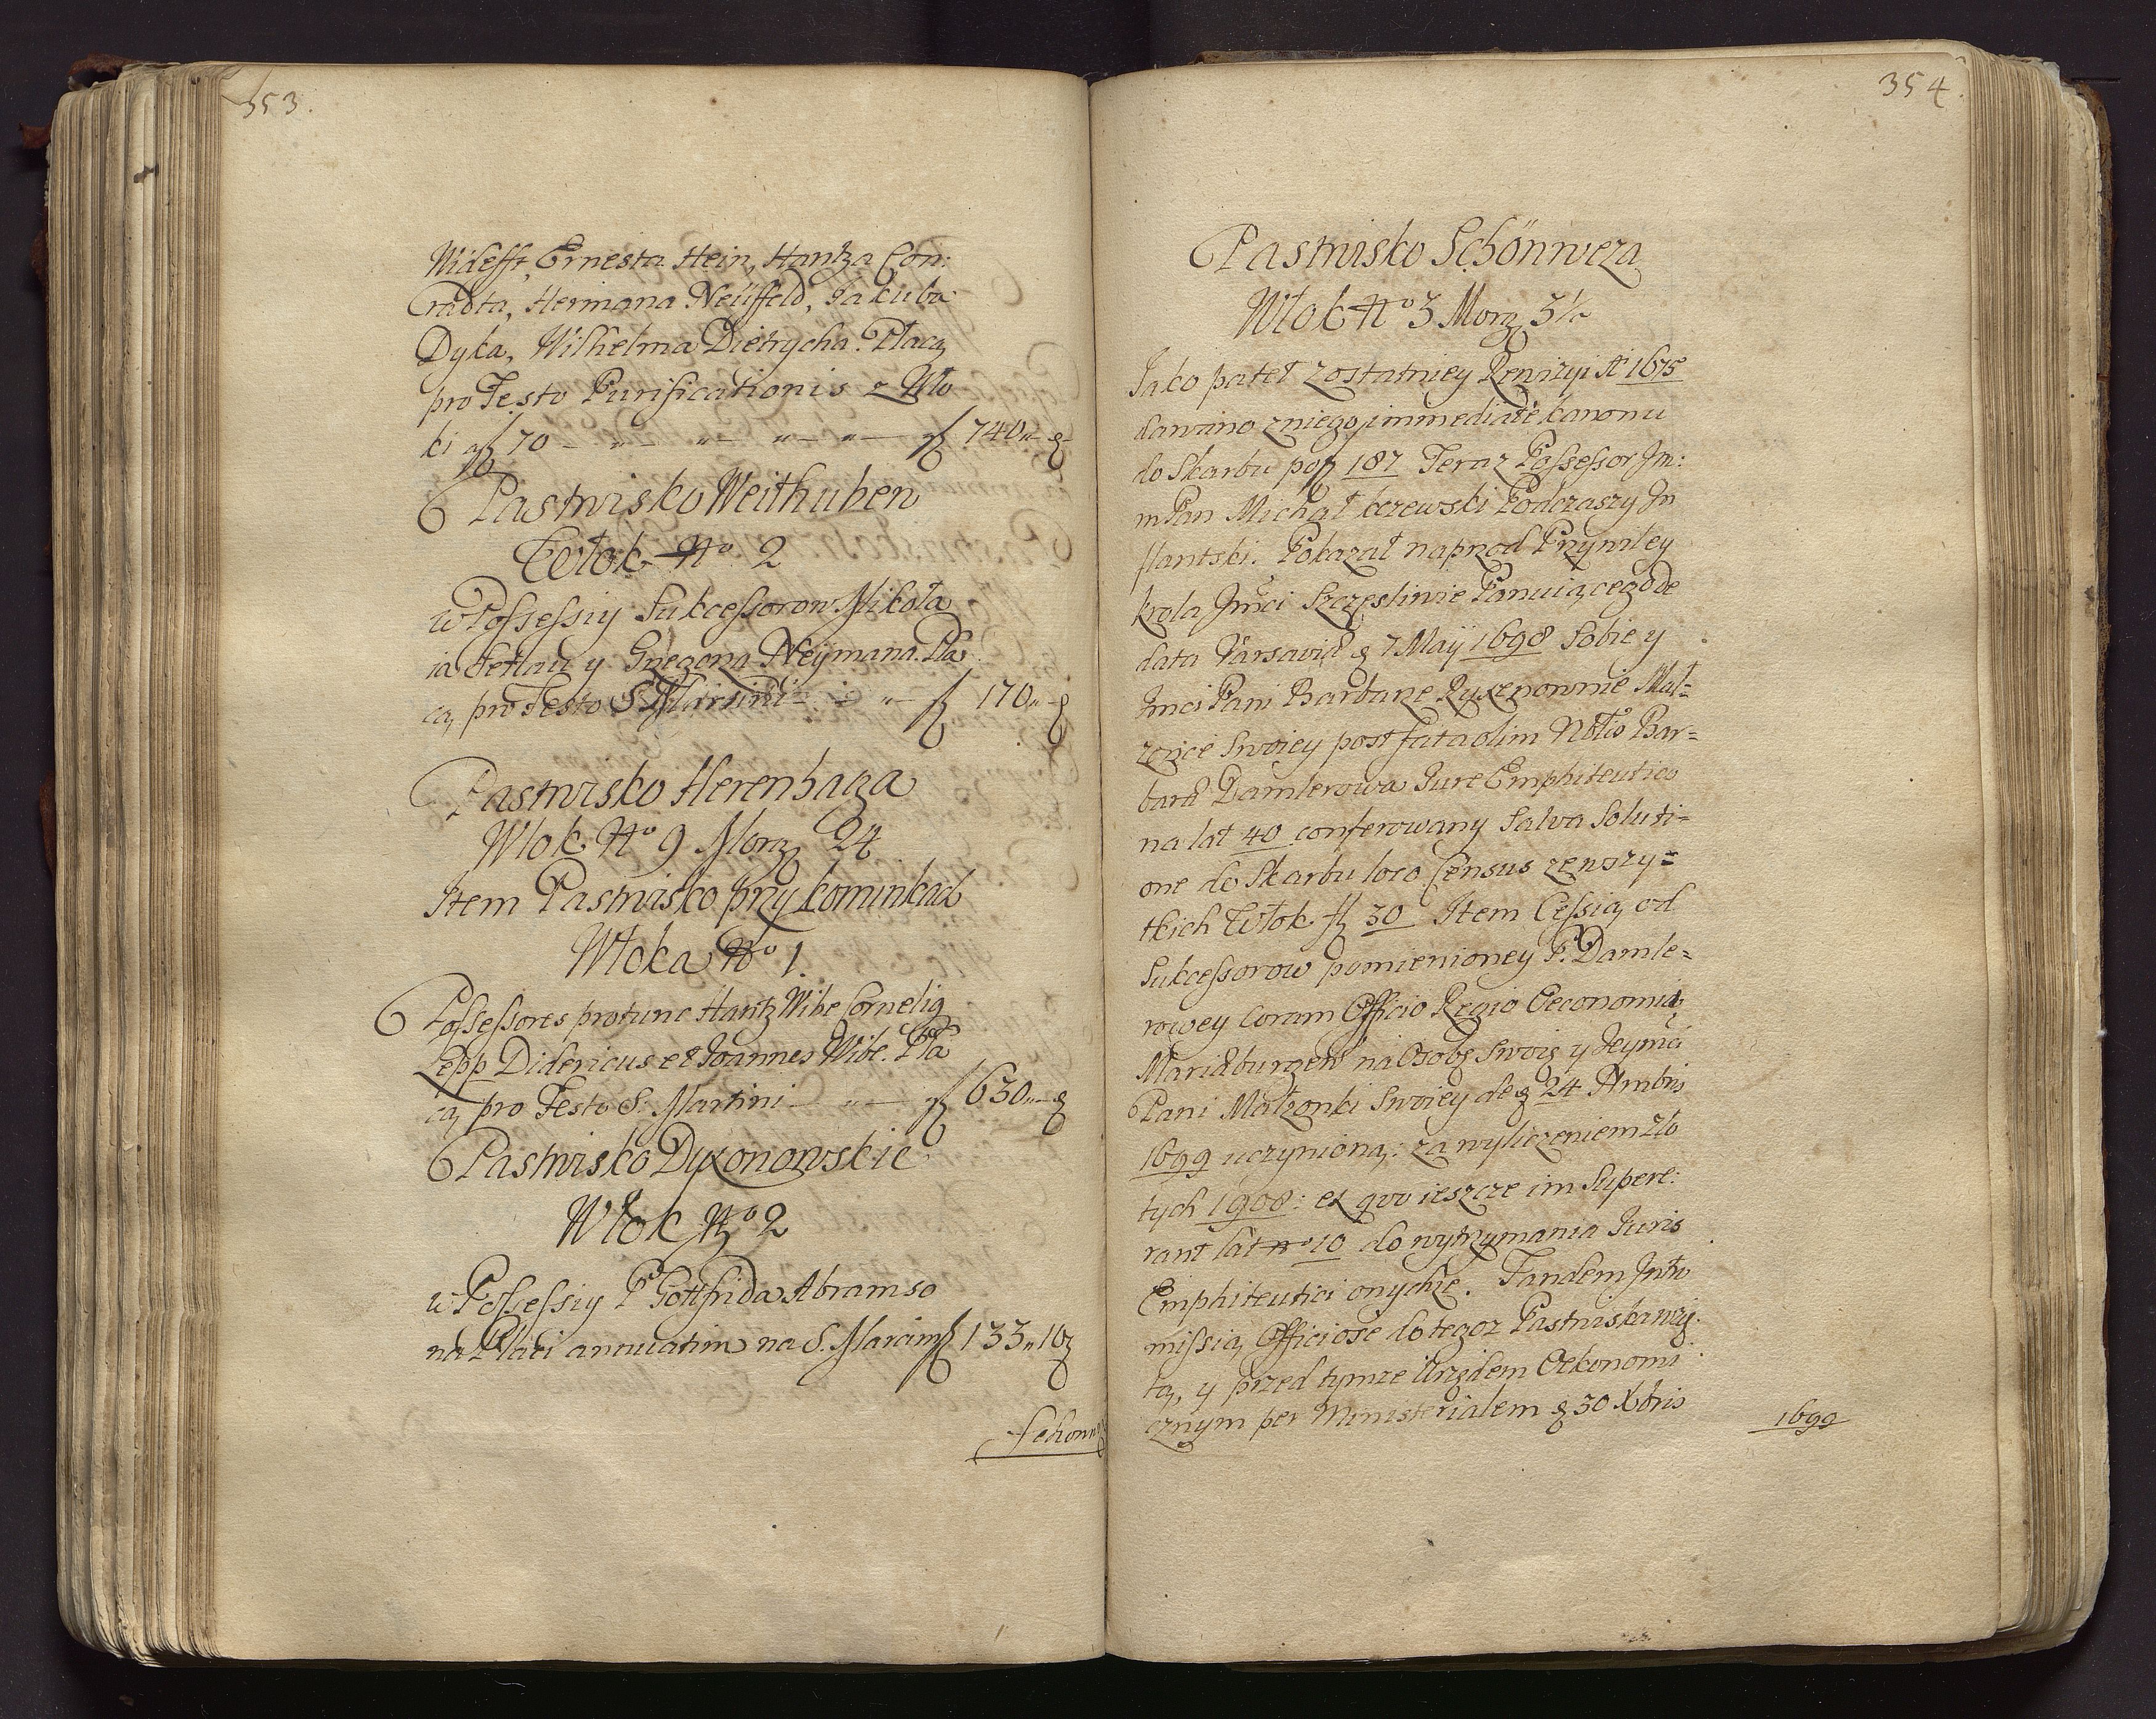 353.
Widefft, Ernesta Hein, Hantza Con:
radta, Hermana Neüffeld, Jakuba
Dyka, Wilhelma Dietrycha. Płacą
pro Festo Purificationis z Wło
ki a fl 70 - „ - „ - „ - „ - fl 740 „ - g
Pastwisko Weithuben
Włok No 2
w Possessiy Sukcessorow Mikoła
ia Serlau y Grzegorza Neÿmana. Pła
cą pro Festo S. Martini - „ - „ - fl 170 „ - g
Pastwisko Herenhaga
Włok No 9 Morg 24
Item Pastwisko przy kominkach
Włoka No 1
Possessores protunc Hantz Wibe Cornelig
Lepp Didericus et Joannes Wibe. Pła
cą pro Festo S. Martini - „ - fl 630 „ - g
Pastwisko Dyxonowskie
Włok No 2
w Possessiy P. Gottfrida Abramso
na Płaci annuatim na S. Marcin fl 133 „ 10 g
Schonwe
354.
Pastwisko Schönweza
Włok No 3 Morg 3½
Jako patet z ostatniey Rewizyi A 1675
dawano z niego immediate kanonu
do Skarbu po fl 187 Teraz Possessor Jm:
m Pan Michał kczewski Podczaszy In
flantski. Pokazał naprzod Przywiley
krola Jmći Szczęsliwie Panuiącego de
data Varsaviæ g 7 Maÿ 1698 Sobie y
Jmci Pani Barbarze Zyszrownie Mał=
zące Swoiey post fata olim Nbło Bar=
baræ Damlerowa Jure Emphiteutico
na lat 40 conferowany Salva Soluti=
one do Skarbu loco Census ze wszy=
tkich Włok fl 30 Item Cessią od
Sukcessorow pomienioney P. Damle=
rowey Coram Officio Regio Oeconomiæ
Mariæburgen na Osobę Swoię y Jeymći
Pani Małzonki Swoiey de g 24 Ambris
1699 uczynioną: za wyliczeniem Zło
tych 1908: ex quo ieszcze im Supere:
rant lat No 10 do wytrzymania Juris
Emphiteutici onychże. Tandem Intro
missią Officiose do tegoz Pastwiska wzię
tą, y przed tymże Urzędem Oekonomi
cznym per Ministerialem g 30 Xbris
1699